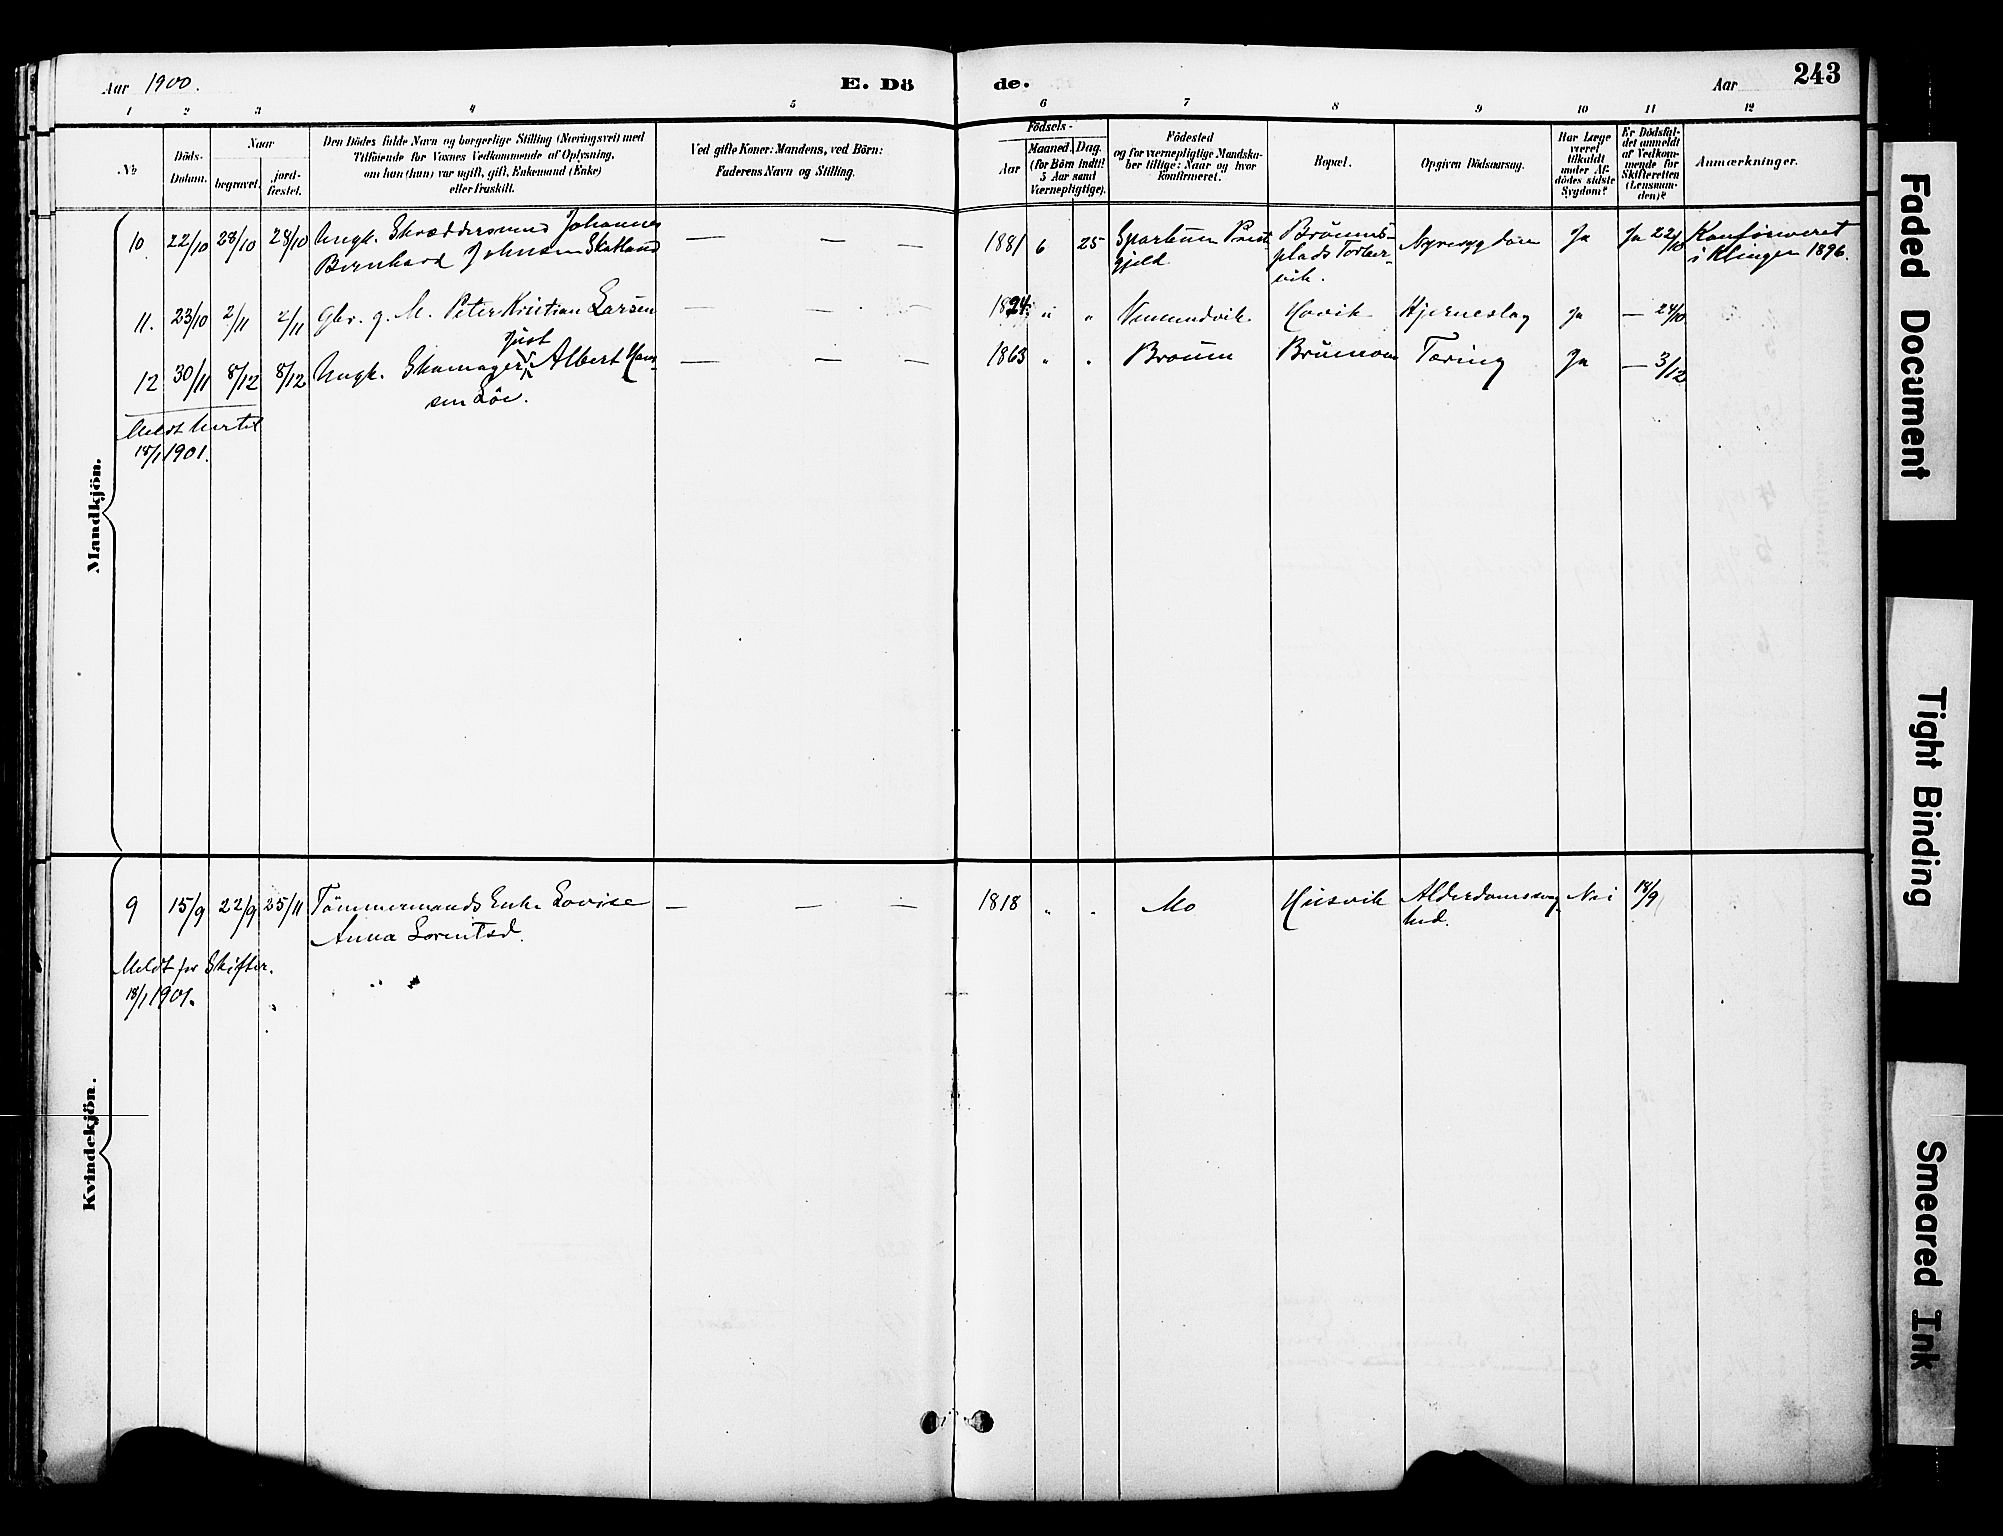 Aar 1900.
E. Dö
de.
Aar
243
1 2 3 4 5 6 7 8 9 10 11 12
No
Döds-
Datum.
Naar
begravet.
jord-
fæstet.
Den Dödes fulde Navn og borgerlige Stilling (Næringsvei) med
Tilföiende for Voxnes Vedkommende af Oplysning,
om han (hun) var ugift, gift, Enkemand (Enke)
eller fraskilt.
Ved gifte Koner: Mandens, ved Börn:
Faderens Navn og Stilling.
Födsels-
Aar
Maaned.
Dag.
(for Börn indtil
5 Aar samt
Værnepligtige).
Födested
og for værnepligtige Mandska-
ber tillige: Naar og hvor
Konfirmeret.
Bopæl.
Opgiven Dödsaarsag.
Har Læge
været
tilkaldt
under Af-
dödes sidste
Sygdom?
Er Dödsfal-
det anmeldt
af Vedkom-
mende for
Skifteretten
(Lensman-
den)?
Anmærkninger.
Mandkjön.
10 22/10 28/10 28/10 Ungk. Skræddersvend Johannes
Bernhard Johnsen Skatland
— — —
1881 6 25 Sparbuen Præst-
gjeld
Brouns-
plads
vik.
Nyresygdom Ja Ja 22/10 Konfirmeret
i Klingen 1896.
11. 23/10 2/11 2/11 Gbr. g. M. Peter Kristian Larsen
— — —
1824 " " Vemundvik Hovik Hjerneslag Ja — 24/10
Just
12 30/11 8/12 8/12 Ungk. Skomager Albert Han-
sen Löe.
— — —
1863 " " Broum Tæring Ja — 3/12
Meldt hertil
18/1 1901.
Kvindekjön.
9 15/9 22/9 25/11 Tömmermands Enke Lovise
Anna Lorentsd.
— — —
1818 " " Mo Husvik Alderdomssvag-
hed.
Nei 18/9
Meldt for Skifter.
18/1 1901.
Faded Document
Tight Binding
Smeared Ink